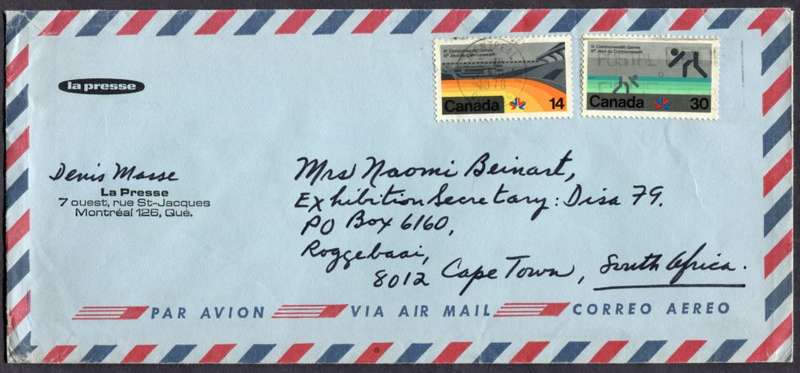 la presse
XI Commonwealth Games
XIes Jeux du Commonwealth
Canada 14
XI Commonwealth Games
XIes Jeux du Commonwealth
Canada 30
Denis Masse
La Presse
7 ouest, rue St-Jacques
Montréal 126, Qué.
Mrs Naomi Beinart,
Exhibition Secretary: Disa 79.
PO Box 6160,
Roggebaai,
8012 Cape Town, South Africa.
PAR AVION VIA AIR MAIL CORREO AEREO